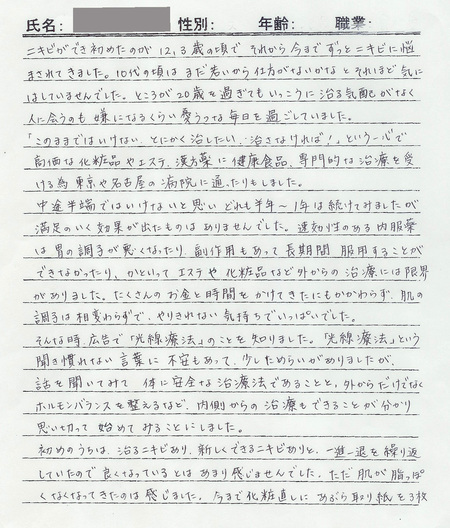 氏名: 性別: 年齢: 職業:
ニキビができ初めたのが12,3歳の頃で それから今までずっとニキビに悩
まされてきました。10代の頃は まだ若いから仕方がないかな とそれほど気に
はしていませんでした。ところが20歳を過ぎてもいっこうに治る気配がなく
人に会うのも嫌になるくらい憂うつな毎日を過ごしていました。
「このままではいけない、とにかく治したい、治さなければ!」という一心で
高価な化粧品やエステ、漢方薬に健康食品、専門的な治療を受
ける為東京や名古屋の病院に通ったりもしました。
中途半端ではいけないと思い どれも半年~1年は続けてみましたが
満足のいく効果が出たものはありませんでした。速効性のある内服薬
は胃の調子が悪くなったり、副作用もあって長期間 服用することが
できなかったり、かといって エステや 化粧品など外からの 治療には限界
がありました。たくさんのお金と時間をかけてきたにもかかわらず、肌の
調子は相変わらずで、やりきれない気持ちでいっぱいでした。
そんな時、広告で「光線療法」のことを知りました。「光線療法」という
聞き慣れない言葉に不安もあって、少しためらいがありましたが、
話を聞いてみて 体に安全な治療法であることと、外からだけでなく
ホルモンバランスを整えるなど、内側からの 治療もできることが分かり
思い切って 始めて みることにしました。
初めのうちは、治るニキビあり、新しくできるニキビありと、一進一退を繰り返
していたので良くなっているとは あまり感じませんでした。ただ 肌が脂っぽ
くなくなってきたのは感じました。今まで化粧直しに あぶら取り紙を3枚